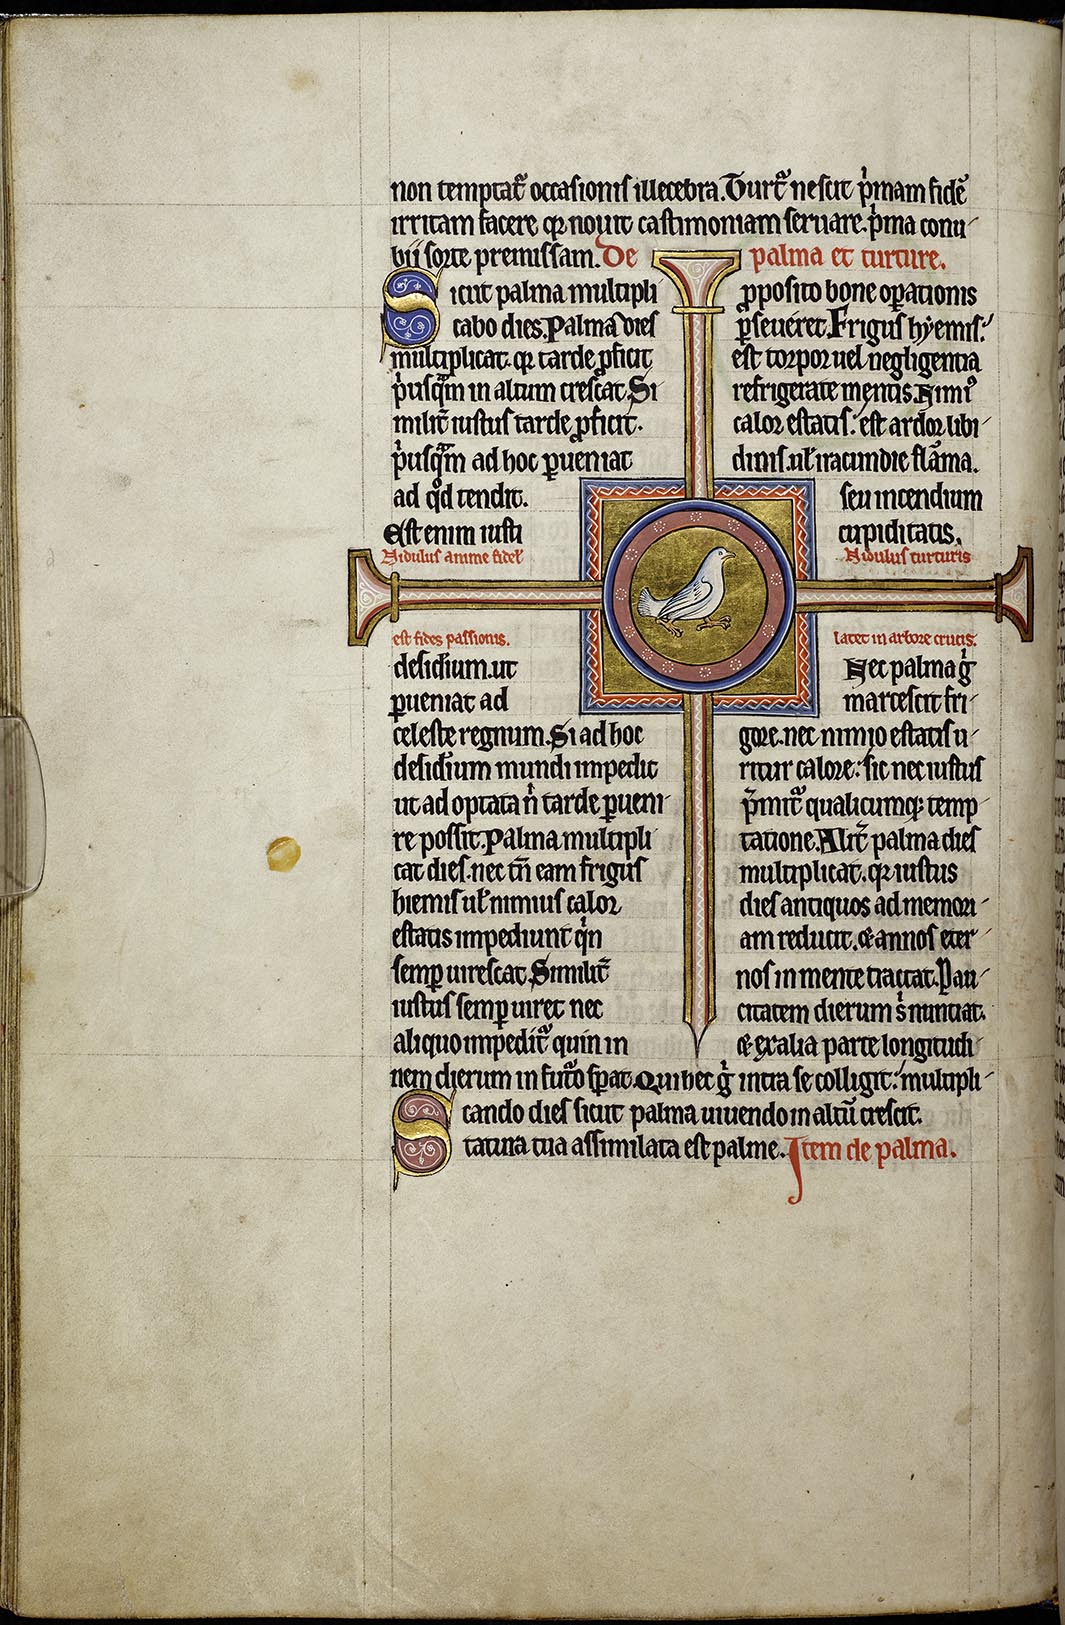 non temptat᷑ occasionis illecebra. Turt᷑ nescit p̍mam fidē
irritam facere qr nouit castimoniam seruare. p̍ma conu-
bii sorte premissam. De palma et turture.
Sicut palma multipli
cabo dies. Palma dies
multiplicat. qr tarde ꝓficit
p̍usq̄m in altum crescat. Si
milit᷑ iustus tarde ꝓficit.
p̍usq̄m ad hoc ꝑueniat
ad qͦd tendit.
Est enim iusti
Nidulus anime fidel᷑
est fides passionis.
desid᷑ium. ut
ꝑueniat ad
celeste regnum. Si ad hoc
desid᷑ium mundi impedit
ut ad optata n̍ tarde ꝑueni-
re possit. Palma multipli
cat dies. nec tn̄ eam frigus
hiemis ul̵ nimius calor
estatis impediunt qͥn
semꝑ uirescat. Similit᷑
iustus semꝑ uiret nec
aliquo impedit᷑ quin in
ꝓposito bone oꝑationis
ꝑseueret. Frigus hyemis:
est torpor uel negligentia
refrigerate mentis. Nimiꝰ
calor estatis: est ardor libi-
dinis. ul̵ iracundie flāma.
seu incendium
cupiditatis.
Nidulus turturis
latet in arbore crucis.
Nec palma g̍
marcescit fri-
gore. nec nimio estatis u-
ritur calore: sic nec iustus
p᷑mit᷑ qualicumqꝫ temp-
tatione. Alit᷑ palma dies
multiplicat. qr iustus
dies antiquos ad memori-
am reducit. & annos eter-
nos in mente tractat. Pau-
citatem dierum s̍ nuntiat.
& ex alia parte longitudi-
nem dierum in fut᷑o sꝑat. Qui hec g̍ intra se colligit: multipli-
cando dies sicut palma uiuendo in altū crescit.
Statura tua assimilata est palme. Item de palma.